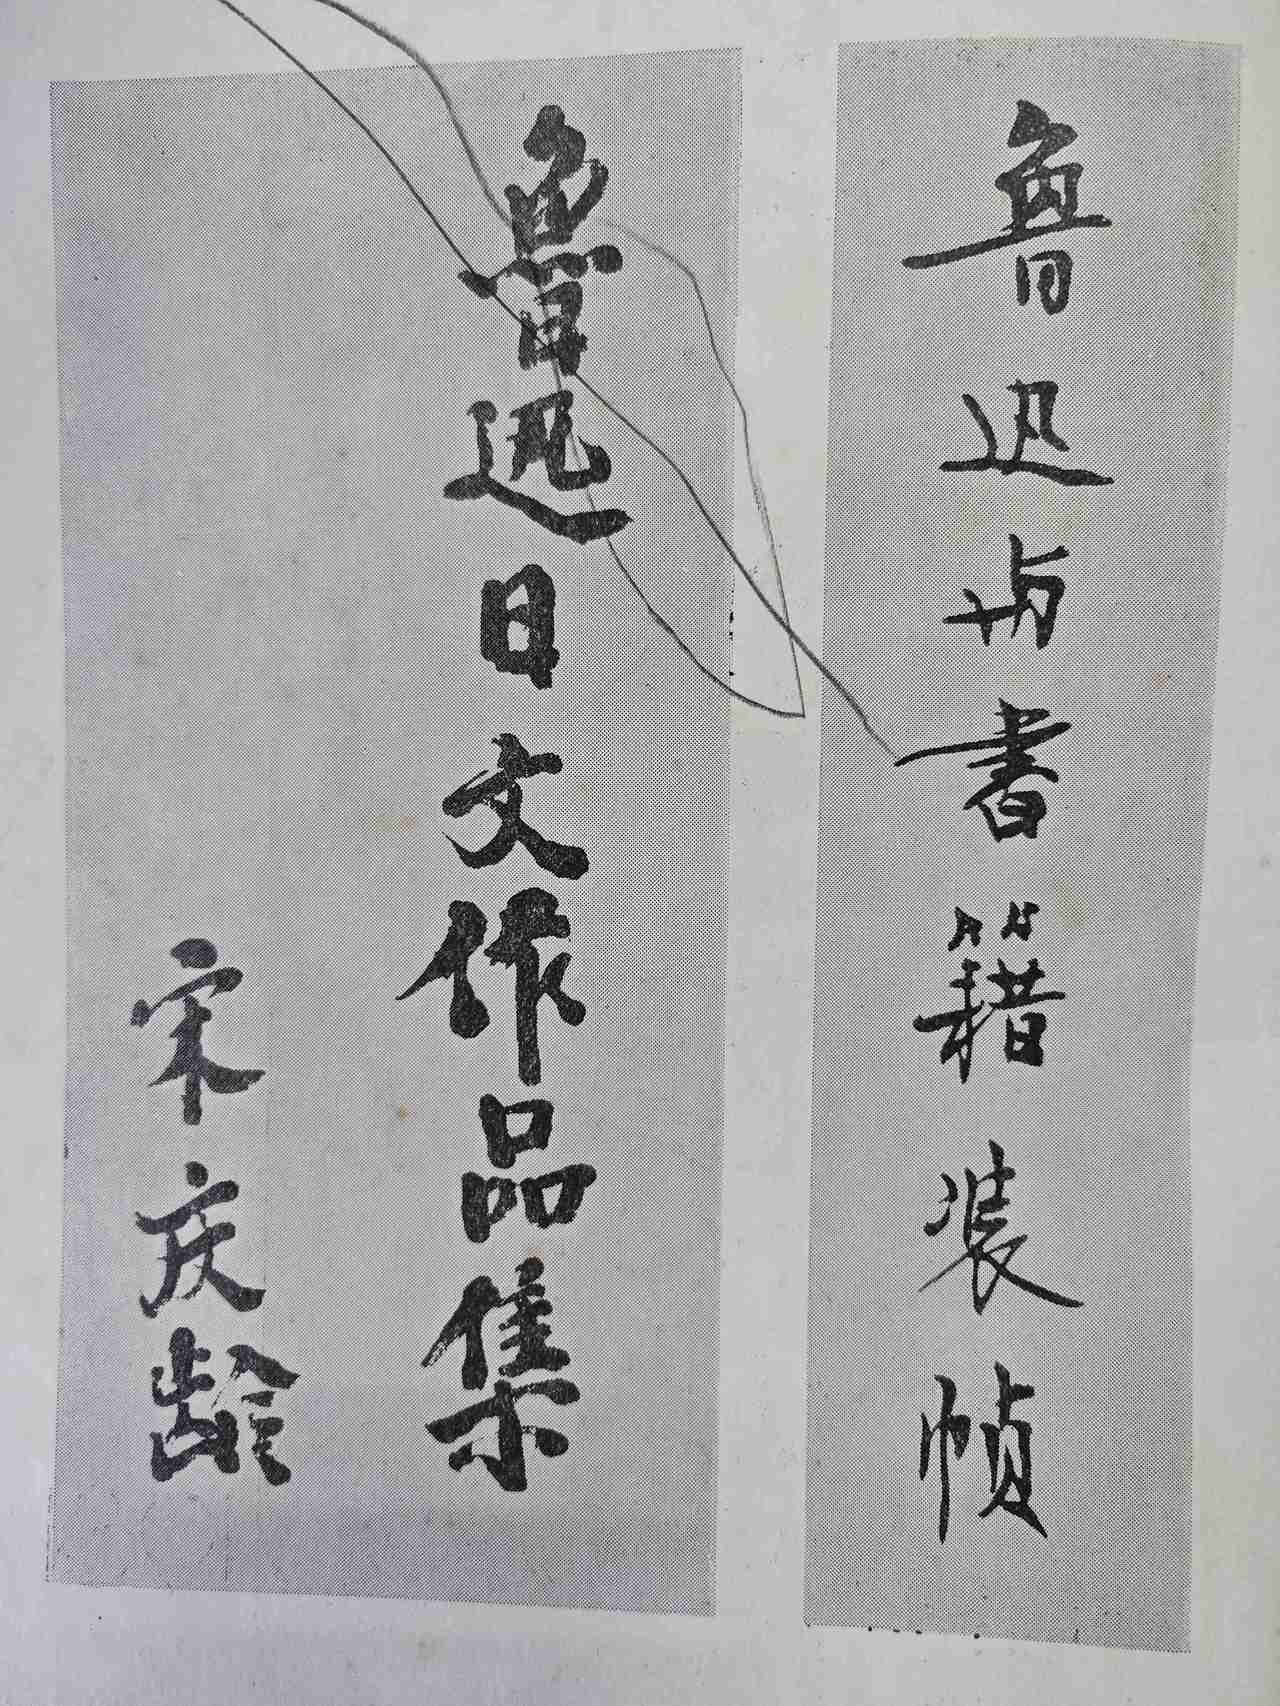 鲁迅与书籍装帧
鲁迅日文作品集
宋庆龄